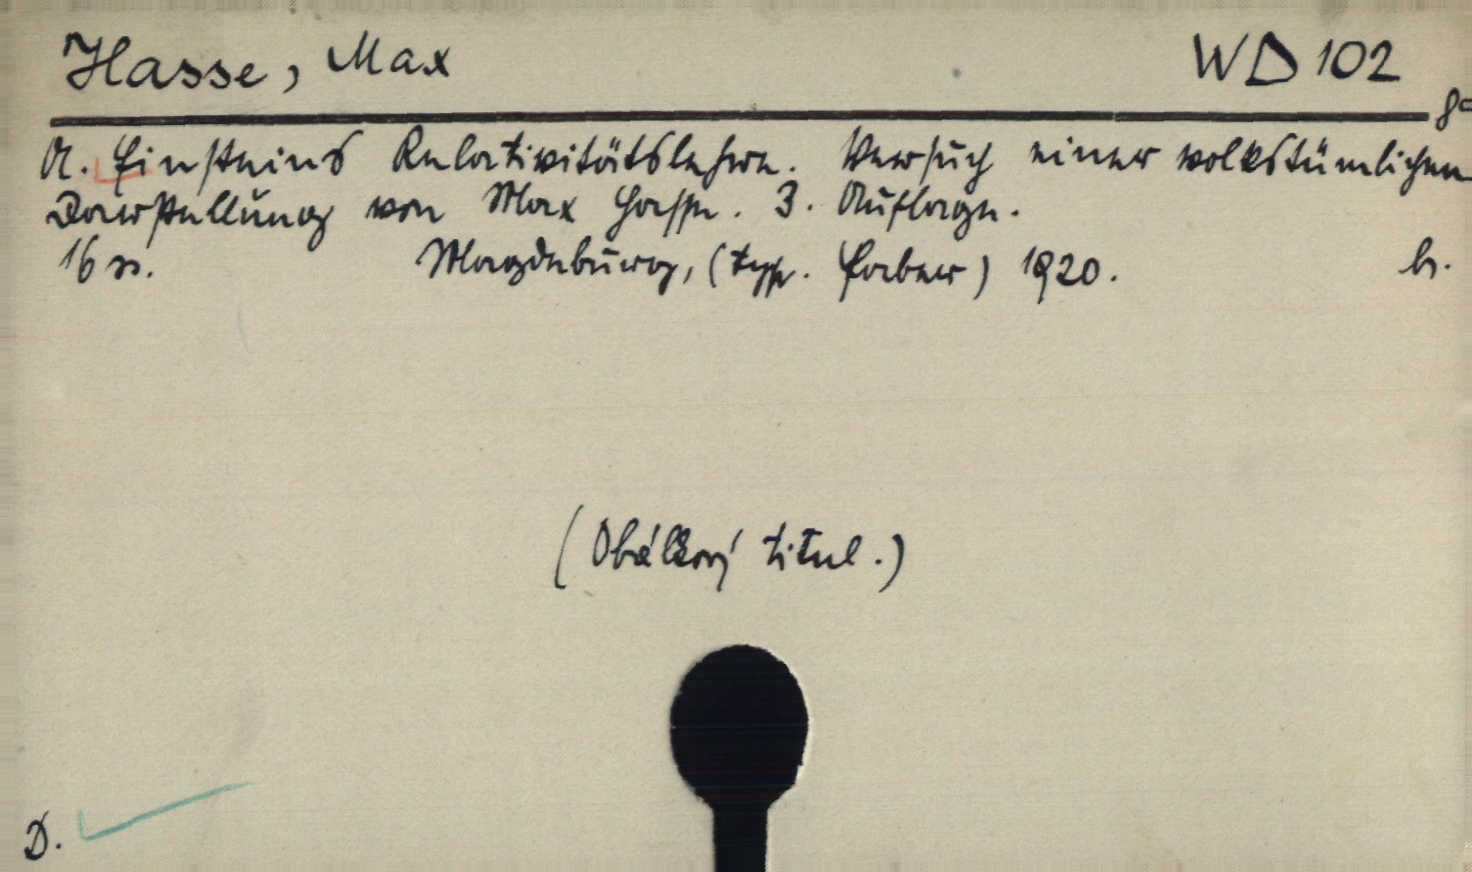 Hasse, Max WD 102
A. Einsteins Relativitätslehre. Versuch einer volkstümlichen
Darstellung von Max Hasse. 3. Auflage.
16 s. Magdeburg, (typ. Faber) 1920. br.
(Obálkový titul.)
D.